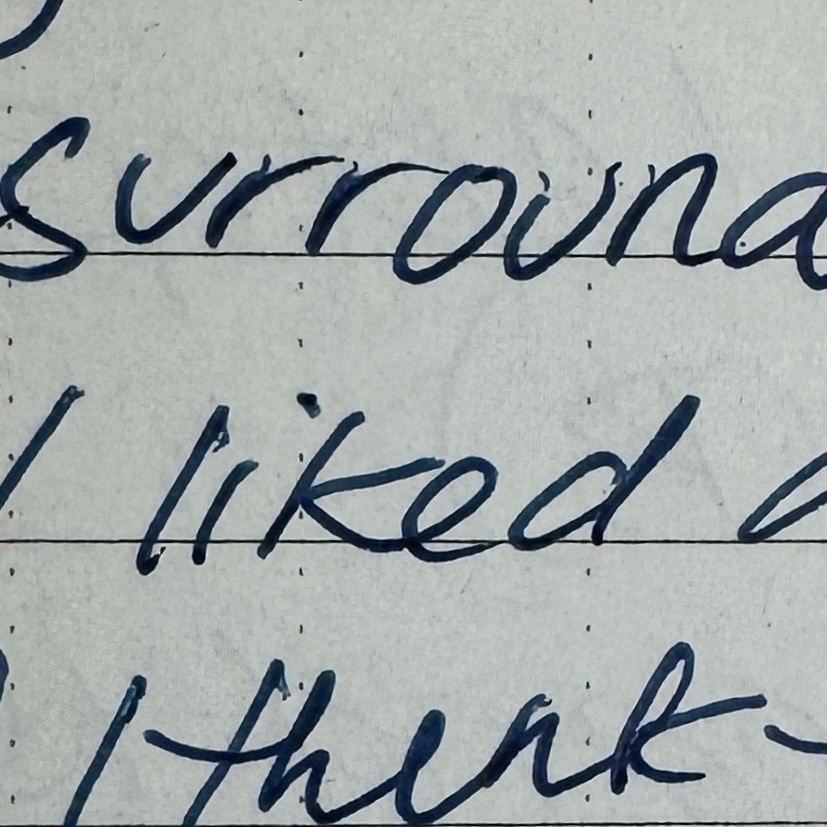 surround
I liked
I think